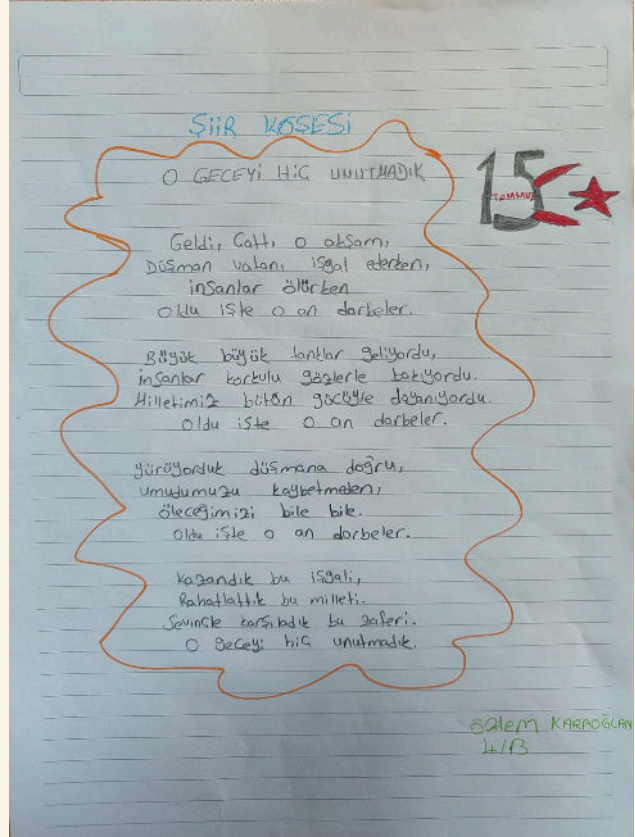 ŞiiR KÖŞESİ
O GECEYİ HİÇ UNUTMADIK
15
TEMMUZ
Geldi, Çattı o akşam,
Düşman vatanı işgal ederken,
insanlar ölürken
Oldu işte o an darbeler.
Büyük büyük tanklar geliyordu,
insanlar korkulu gözlerle bakıyordu.
Milletimiz bütün gücüyle dayanıyordu.
Oldu işte o an darbeler.
yürüyorduk düşmana doğru,
umudumuzu kaybetmeden,
öleceğimizi bile bile.
Oldu işte o an darbeler.
Kazandık bu işgali,
Rahatlattık bu milleti.
Sevinçle karşıladık bu zaferi.
O geceyi hiç unutmadık.
özlem KARAOĞLAN
4/B